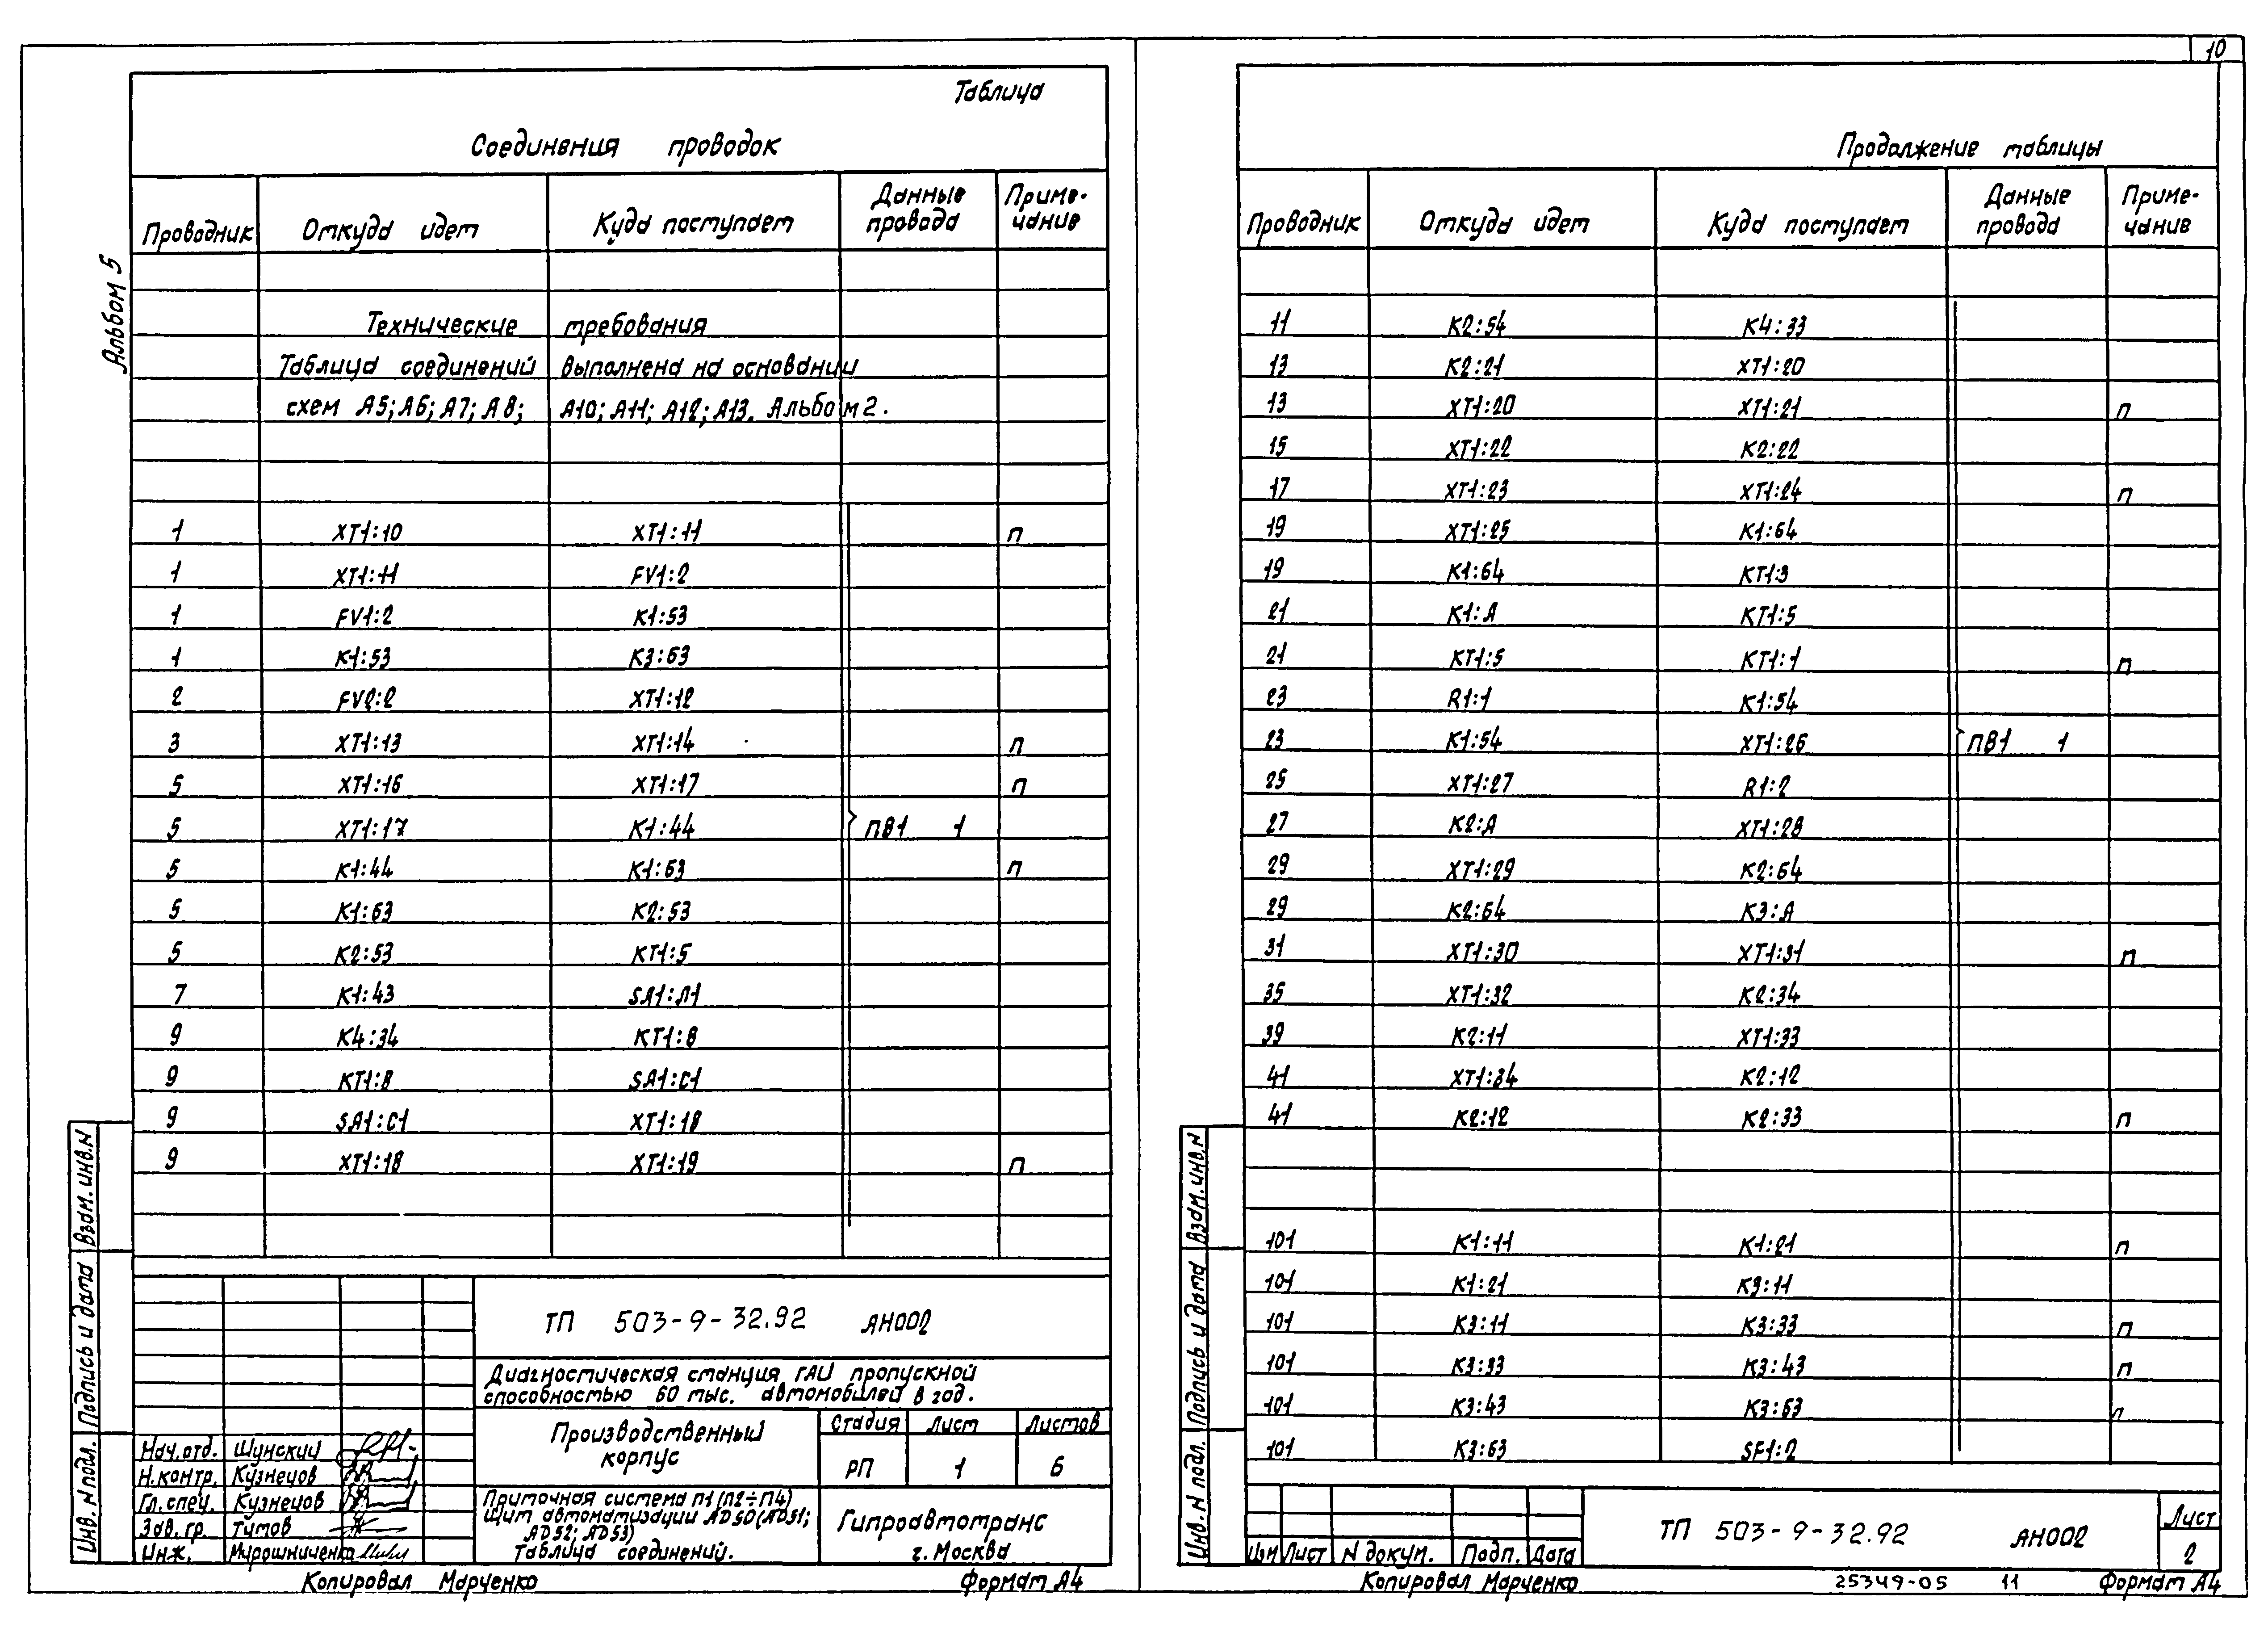 10
Альбом 5
Таблица
Соединения проводок
Проводник Откуда идет Куда поступает Данные провода Приме-чание
Технические требования
Таблица соединений выполнена на основании
схем А5; А6; А7; А8; А10; А11; А12; А13. Альбом 2.
1 XT1:10 XT1:11 п
1 XT1:11 FV1:2
1 FV1:2 K1:53
1 K1:53 K3:63
2 FV2:2 XT1:12
3 XT1:13 XT1:14 п
5 XT1:16 XT1:17 п
5 XT1:17 K1:44 ПВ1 1
5 K1:44 K1:63 п
5 K1:63 K2:53
5 K2:53 KT1:5
7 K1:43 SA1:Л1
9 K4:34 KT1:8
9 KT1:8 SA1:C1
9 SA1:C1 XT1:18
9 XT1:18 XT1:19 п
ТП 503-9-32.92 АН002
Диагностическая станция ГАИ пропускной
способностью 60 тыс. автомобилей в год.
Производственный
корпус
Стадия Лист Листов
РП 1 6
Нач.отд. Шунский
Н.контр. Кузнецов
Гл.спец. Кузнецов
Зав.гр. Титов
Инж. Мирошниченко
Приточная система П1 (П2÷П4)
Щит автоматизации AD50 (AD51;
AD52; AD53)
Таблица соединений.
Гипроавтотранс
г. Москва
Инв. N подл. Подпись и дата Взам. инв. N
Копировал Марченко Формат А4
Продолжение таблицы
Проводник Откуда идет Куда поступает Данные провода Приме-чание
11 K2:54 K4:33
13 K2:21 XT1:20
13 XT1:20 XT1:21 п
15 XT1:22 K2:22
17 XT1:23 XT1:24 п
19 XT1:25 K1:64
19 K1:64 KT1:3
21 K1:A KT1:5
21 KT1:5 KT1:1 п
23 R1:1 K1:54
23 K1:54 XT1:26 ПВ1 1
25 XT1:27 R1:2
27 K2:A XT1:28
29 XT1:29 K2:64
29 K2:64 K3:A
31 XT1:30 XT1:31 п
35 XT1:32 K2:34
39 K2:11 XT1:33
41 XT1:34 K2:12
41 K2:12 K2:33 п
101 K1:11 K1:21 п
101 K1:21 K3:11
101 K3:11 K3:33 п
101 K3:33 K3:43 п
101 K3:43 K3:63 п
101 K3:63 SF1:2
Инв. N подл. Подпись и дата Взам. инв. N
Изм Лист N докум. Подп. Дата
ТП 503-9-32.92 АН002
Лист
2
Копировал Марченко 25349-05 11 Формат А4